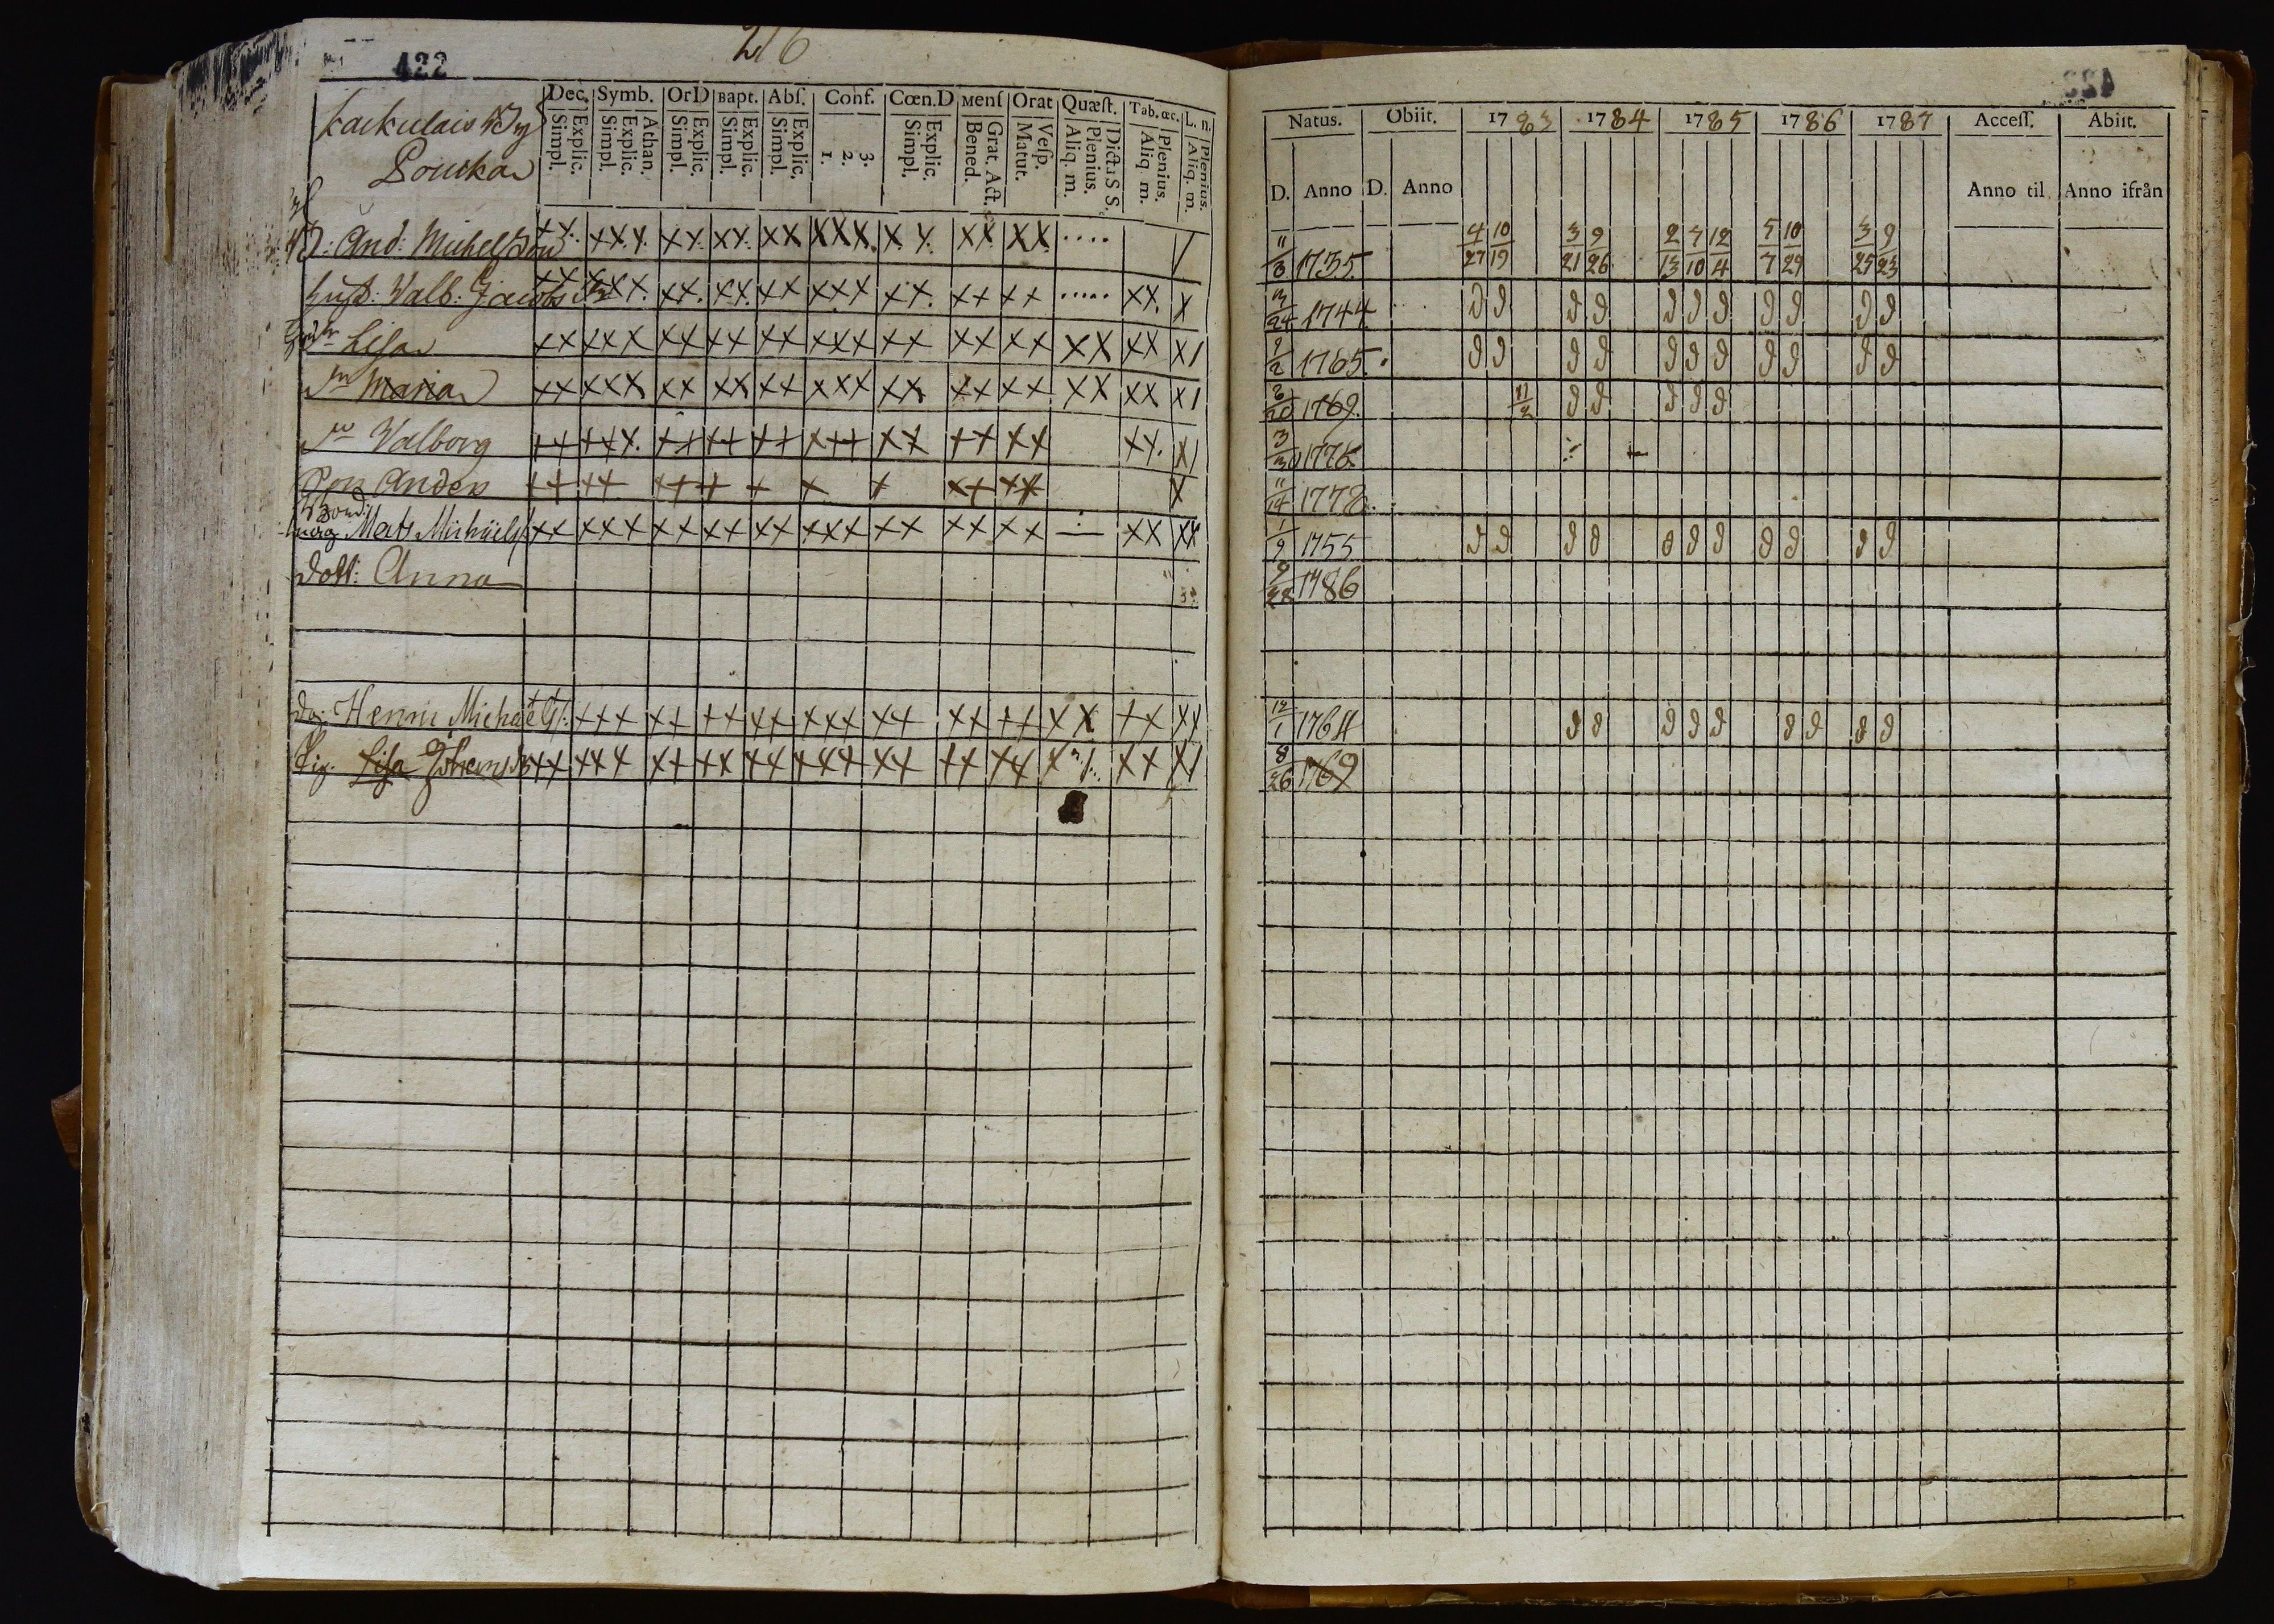 422
216
Kaikulais By
Pouska
Dec. Symb. OrD Bapt. Abſ. Conf. Cœn.D Menſ Orat Quæſt. Tab. œc. L. n.
Explic. Simpl. Athan. Explic. Simpl. Explic. Simpl. Explic. Simpl. Explic. Simpl. 3. 2. 1. Explic. Simpl. Grat. Act. Bened. Veſp. Matut. Dicta S S. Plenius. Aliq. m. Plenius. Aliq. m. Plenius. Aliq. m.
And: Michelsson xx. xxx. xx. xx. xx xxx. x.x. xx xx ....
hust: Valb: Jacobs xx xxx. xx. xx. xx xxx xx. xx xx ..... xx. x
Lisa xx xxx xx xx xx xxx xx xx xx xx xx x/
Maria xx xxx xx xx xx xxx xx xx xx xx xx x/
Valborg xx xxx. xx xx xx xxx xx xx xx xx. x/
Son Anders xx xx xx x x x x xx xx x
Mats Michaels xx xxx xx xx xx xxx xx xx xx ÷ xx xx
dott: Anna
Henric Michaels: xxx xx xx xx xxx xx xx xx xx xx xx
Pig. Lisa Johansd xx xxx xx xx xx xxx xx xx xx x xx x/
Natus. Obiit. 1783 1784 1785 1786 1787 Acceſſ. Abiit.
D. Anno D. Anno Anno til Anno ifrån
11/3 1735 4/27 10/19 3/21 9/26 2/13 4/10 12/4 5/7 10/29 3/25 9/23
1744
1765.
1769. 11/2
3/30 1776
11/14 1778.
1/9 1755
9/22 1786
12/1 1764
8/26 1769